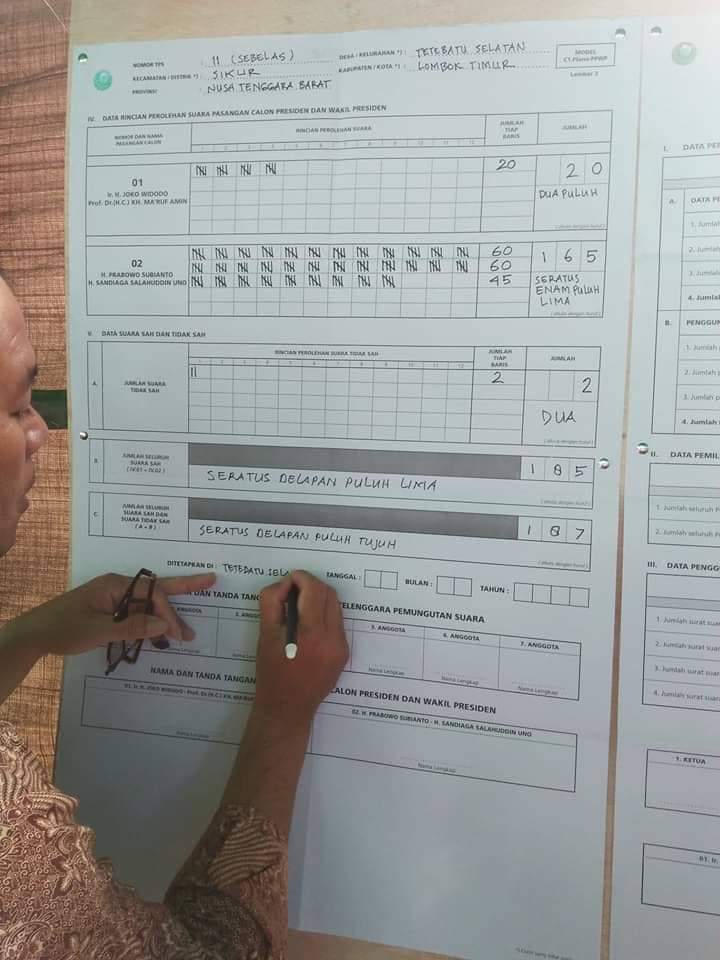 NOMOR TPS : 11 (SEBELAS)
KECAMATAN / DISTRIK *) : SIKUR
PROVINSI : NUSA TENGGARA BARAT
DESA / KELURAHAN *) : TETEBATU SELATAN
KABUPATEN / KOTA *) : LOMBOK TIMUR
MODEL
C1.Plano-PPWP
Lembar 2
IV. DATA RINCIAN PEROLEHAN SUARA PASANGAN CALON PRESIDEN DAN WAKIL PRESIDEN
NOMOR DAN NAMA
PASANGAN CALON
RINCIAN PEROLEHAN SUARA
1 2 3 4 5 6 7 8 9 10 11 12
JUMLAH
TIAP
BARIS
JUMLAH
01
Ir. H. JOKO WIDODO
Prof. Dr.(H.C.) KH. MA'RUF AMIN
20
20
DUA PULUH
(ditulis dengan huruf)
02
H. PRABOWO SUBIANTO
H. SANDIAGA SALAHUDDIN UNO
60
60
45
165
SERATUS
ENAM PULUH
LIMA
(ditulis dengan huruf)
V. DATA SUARA SAH DAN TIDAK SAH
RINCIAN PEROLEHAN SUARA TIDAK SAH
1 2 3 4 5 6 7 8 9 10 11 12
JUMLAH
TIAP
BARIS
JUMLAH
A. JUMLAH SUARA
TIDAK SAH
2
2
DUA
(ditulis dengan huruf)
B. JUMLAH SELURUH
SUARA SAH
(IV.01 + IV.02)
185
SERATUS DELAPAN PULUH LIMA
(ditulis dengan huruf)
C. JUMLAH SELURUH
SUARA SAH DAN
SUARA TIDAK SAH
(A + B)
187
SERATUS DELAPAN PULUH TUJUH
(ditulis dengan huruf)
DITETAPKAN DI : TETEBATU SELA
TANGGAL : BULAN : TAHUN :
DAN TANDA TANG
ELENGGARA PEMUNGUTAN SUARA
ANGGOTA
5. ANGGOTA
6. ANGGOTA
7. ANGGOTA
Nama Lengkap
Nama Lengkap
Nama Lengkap
NAMA DAN TANDA TANGAN
CALON PRESIDEN DAN WAKIL PRESIDEN
01. Ir. H. JOKO WIDODO - Prof. Dr.(H.C.) KH. MA'RUF
02. H. PRABOWO SUBIANTO - H. SANDIAGA SALAHUDDIN UNO
Nama Lengkap
Nama Lengkap
I. DATA PE
A. DATA PE
1. Jumlah
2. Jumlah
3. Jumlah
4. Jumlah
B. PENGGUN
1. Jumlah
2. Jumlah
3. Jumlah
4. Jumlah
II. DATA PEMIL
1. Jumlah seluruh
2. Jumlah seluruh
III. DATA PENGG
1. Jumlah surat sua
2. Jumlah surat sua
3. Jumlah surat sua
4. Jumlah surat sua
1. KETUA
01. Ir.